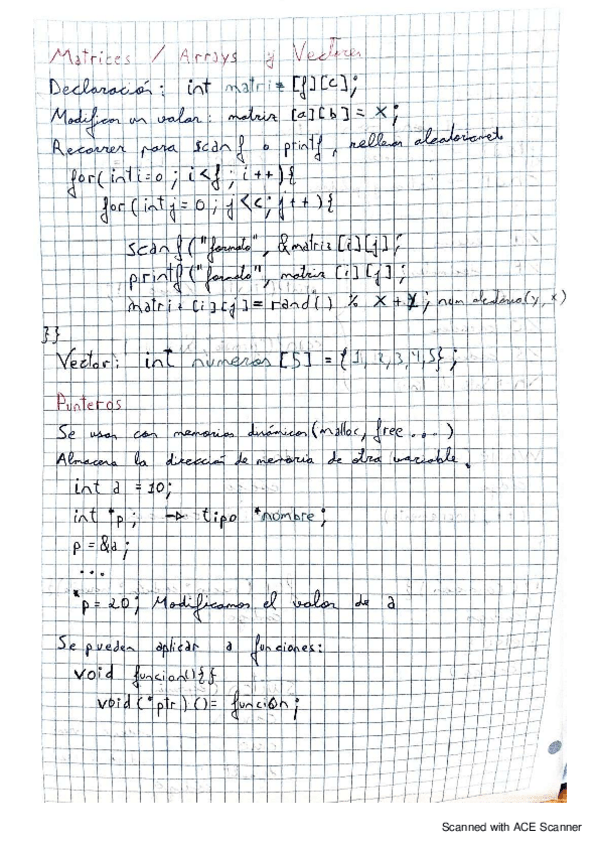 Matrices / Arrays y Vectores
Declaración: int matriz [f][c];
Modificar un valor: matriz [a][b] = x;
Recorrer para scanf o printf, rellenar aleatoriament.
for(int i=0 ; i<f ; i++){
for (int j=0 ; j<c; j++){
scanf("formato", &matriz [i][j];
printf("formato", matriz [i][j];
matriz [i][j]= rand() % x + y; num aleatorio(y, x)
}}
Vector: int numeros [5] = {1,2,3,4,5};
Punteros
Se usan con memorias dinámicas (malloc, free ...)
Almacena la dirección de memoria de otra variable.
int a = 10;
int *p; → tipo *nombre;
p = &a;
...
*p = 20; Modificamos el valor de a
Se pueden aplicar a funciones:
void funcion(){}
void(*ptr)()= función;
Scanned with ACE Scanner